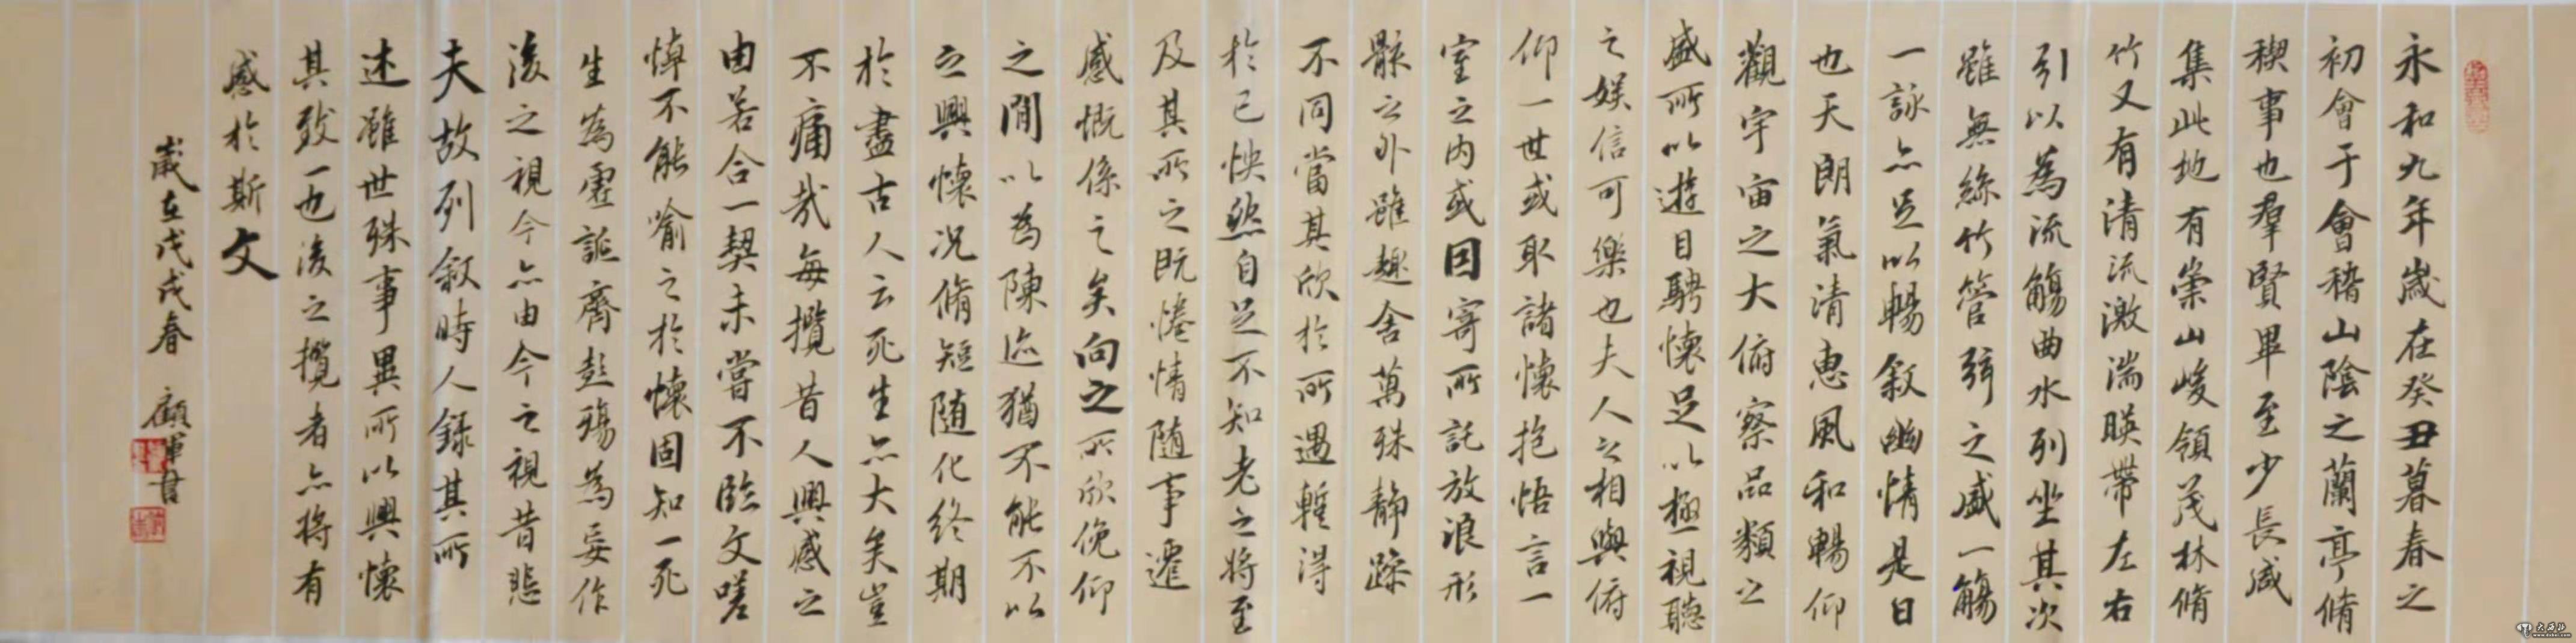 永和九年歲在癸丑暮春之
初會于會稽山陰之蘭亭脩
稧事也羣賢畢至少長咸
集此地有崇山峻領茂林脩
竹又有清流激湍暎帶左右
引以為流觴曲水列坐其次
雖無絲竹管弦之盛一觴
一詠亦足以暢敘幽情是日
也天朗氣清惠風和暢仰
觀宇宙之大俯察品類之
盛所以遊目騁懷足以極視聽
之娛信可樂也夫人之相與俯
仰一世或取諸懷抱悟言一
室之內或因寄所託放浪形
骸之外雖趣舍萬殊靜躁
不同當其欣於所遇暫得
於己怏然自足不知老之將至
及其所之既惓情隨事遷
感慨係之矣向之所欣俛仰
之閒以為陳迹猶不能不以
之興懷況脩短隨化終期
於盡古人云死生亦大矣豈
不痛哉每攬昔人興感之
由若合一契未嘗不臨文嗟
悼不能喻之於懷固知一死
生為虛誕齊彭殤為妄作
後之視今亦由今之視昔悲
夫故列敘時人錄其所
述雖世殊事異所以興懷
其致一也後之攬者亦將有
感於斯文
歲在戊戌春 顧軍書